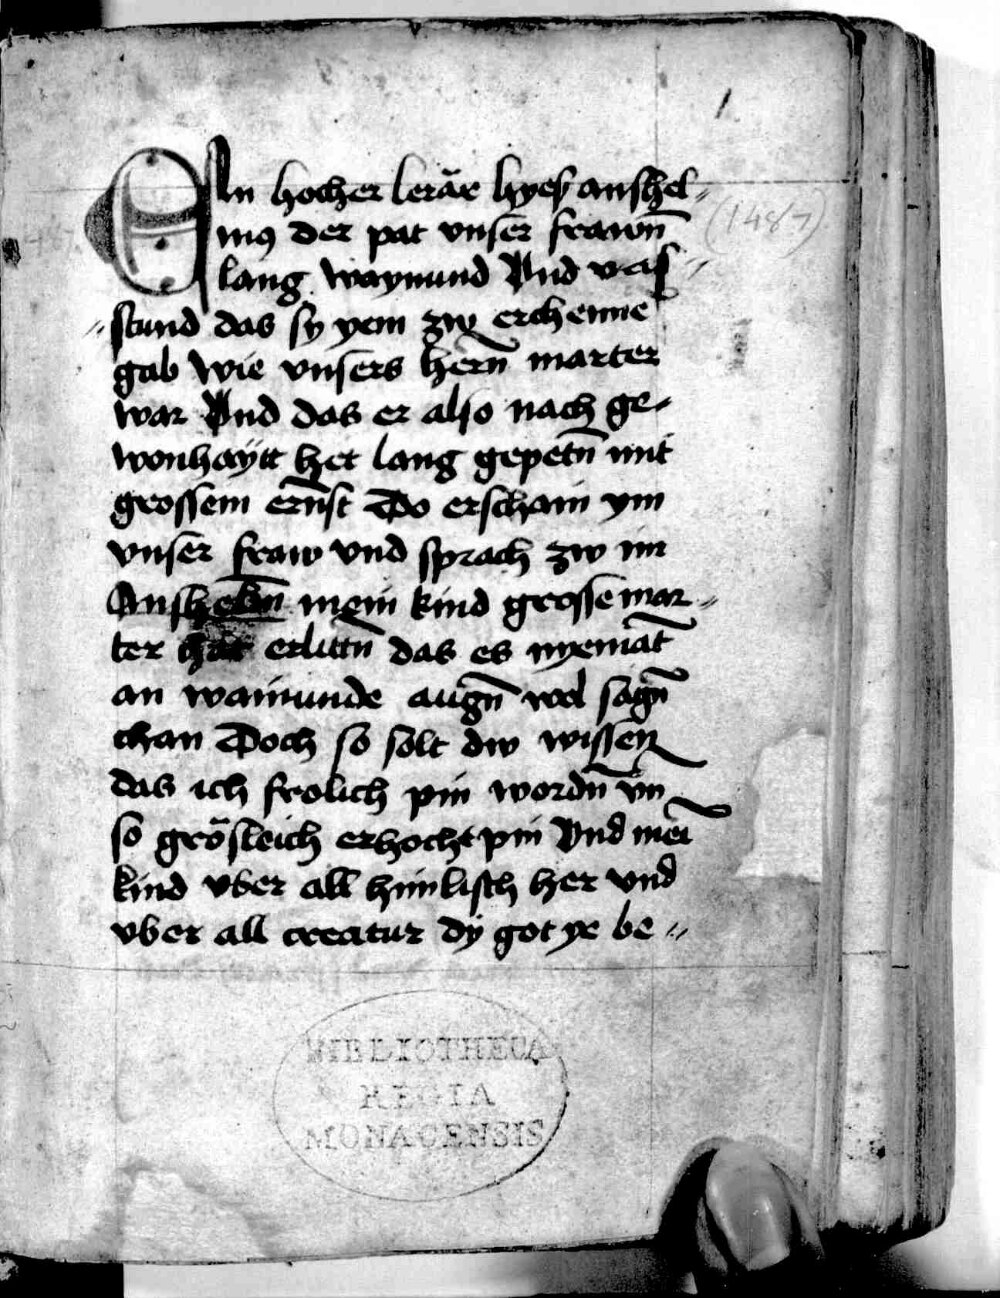 1
EIn hocher lerär hyeſ anſhel„
mꝯ der pat vnſer frawn̄
lang waynund Vnd vaſ„
„ſtund das ſy yem zw erchenne
gab wie vnſers hern̄ marter
war Vnd das er alſo nach ge„
wonhaÿtt het lang gepetn̄ mit
groſſem ern̄ſt Do erſchain ym
vnſer fraw vnd ſprach zw im
Anſhelm̄ mein kind groſſe mar„
ter hat erlittn̄ das es nyemāt
an wainunde augn̄ wol ſagn̄
chan Doch ſo ſolt dw wiſſen
das ich frolich pin wordn̄ vn̄
ſo gröſleich erhocht pin Vnd mei̅
kind vber all himliſch her vnd
vber all creatur dÿ got ye be„
(1487)
BIBLIOTHECA
REGIA
MONACENSIS